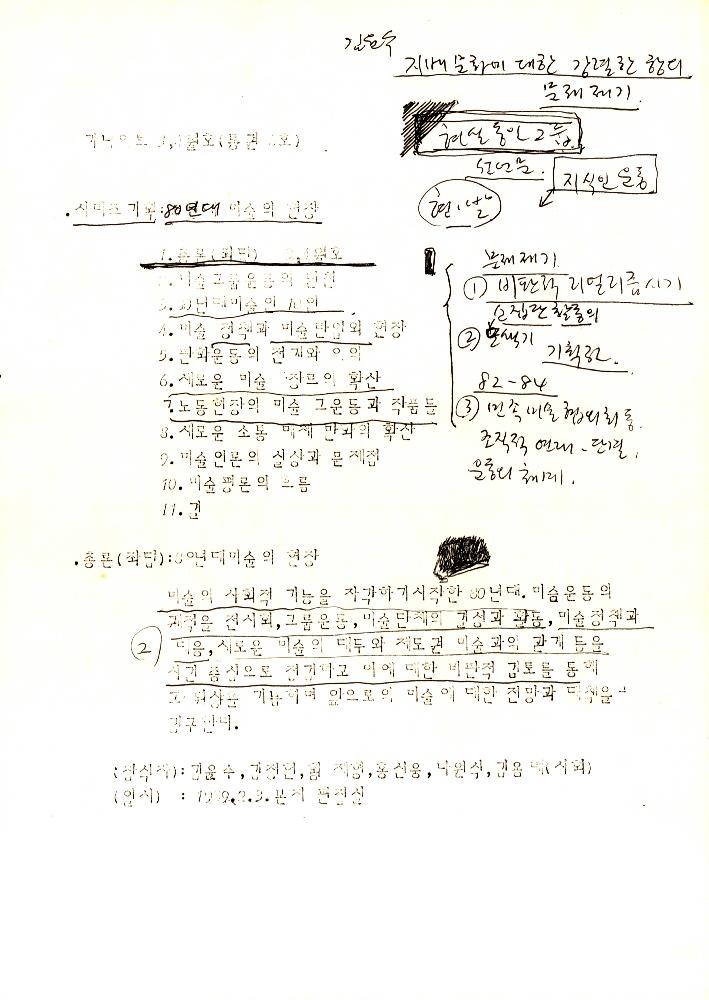 김윤수
지배문화에 대한 강렬한 항의
문제제기.
현실동인그룹.
선언문.
지식인운동
현·발
3,4월호(통권 호)
.시리즈 기획:80년대 미술의 현장
1.총론(좌담) 3,4월호
2.미술그룹운동의
3.80년대미술의 10인
4.미술 정책과 미술탄압의 현장
5.판화운동의 전개와 의의
6.새로운 미술 장르의 확산
7.노동현장의 미술 그운동과 작품들
8.새로운 소통 매재 만화의 확산
9.미술언론의 실상과 문제점
10.미술평론의 흐름
11.
문제제기
① 비판적 리얼리즘시기
소집단 활동의
② 모색기
기획전.
82-84
③ 민족미술협의회 통.
조직적 연대-단결.
운동의 체계.
.총론(좌담):80년대미술의 현장
미술의 사회적 기능을 자각하기시작한 80년대.미술운동의
궤적을 전시회,그룹운동,미술단체의 결성과 활동,미술정책과
② 대응,새로운 미술의 대두와 제도권 미술과의 관계 등을
사건 중심으로 점검하고 이에 대한 비판적 검토를 통해
그 위상을 가늠하며 앞으로의 미술에 대한 전망과 대책을
강구한다.
(참석자):김윤수,강정현, 홍선웅,박원식,김용 (사회)
(일시) : 1989.2.3.본지 편집실